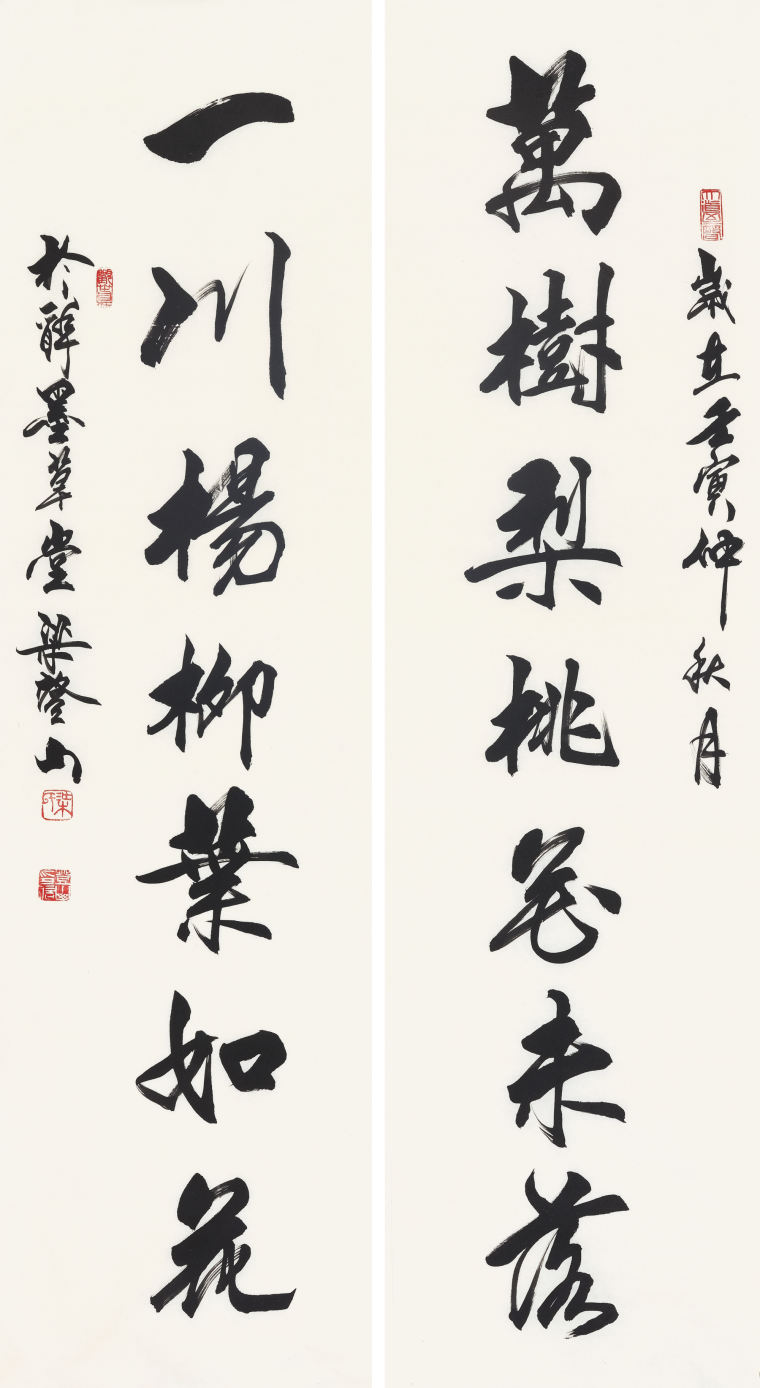 歲在壬寅仲秋月
萬樹梨桃花未落
一川楊柳葉如花
於醉墨草堂梁登山